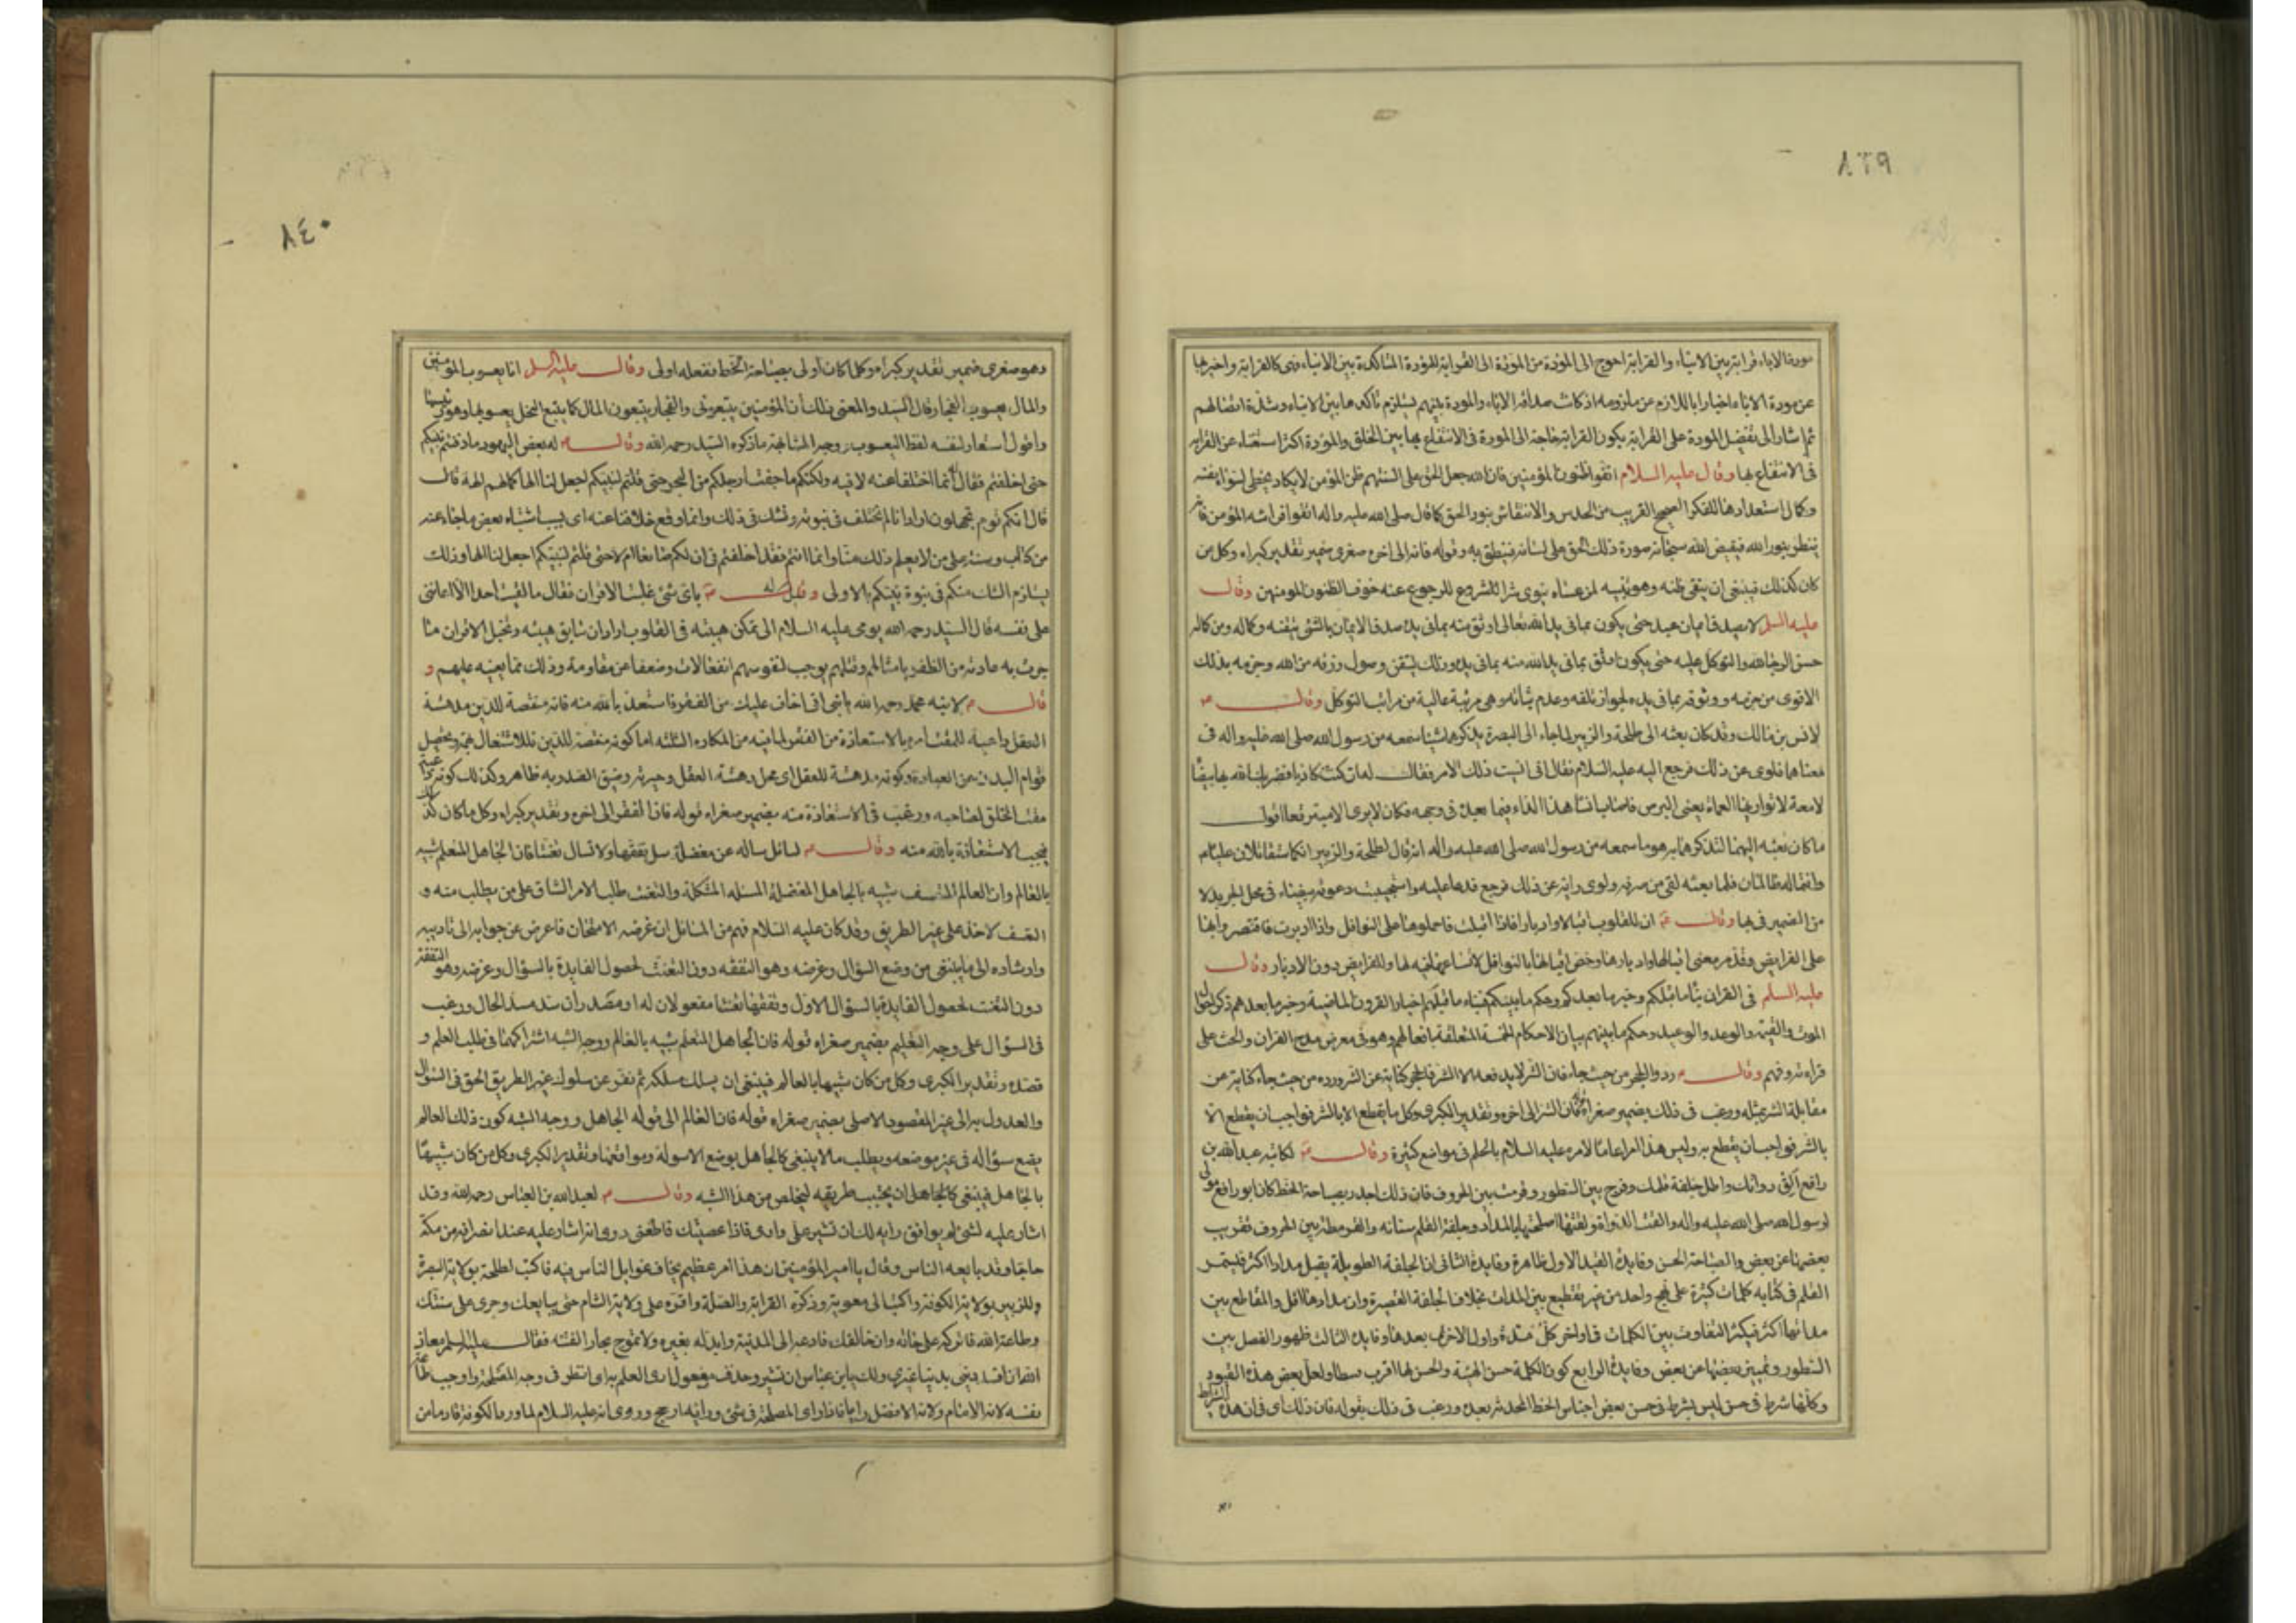 ٨٣٩
مودة الاباء قرابة بين الابناء والقرابة احوج الى المودة من المودة الى القرابة المودة المتاكدة بين الابناء فهى كالقرابة واخبر بها
عن مودة الاباء اخبارا باللازم عن ملزومه اذ كانت صداقة الاباء والمودة بينهم يستلزم تاكدها بين الابناء وشدة اتصالهم
ثم اشار الى تفضيل المودة على القرابة بكون القرابة حاجة الى المودة فى الانتفاع بها بين الخلق والمودة اكثر استغناء عن القرابة
فى الانتفاع بها وقال عليه السلام اتقوا ظنون المؤمنين فان الله جعل الحق على السنتهم ظن المؤمن لايكاد يخطى لسواء نفسه
وكمال استعدادها للفكر الصحيح القريب من الحدس والانتقاش بنور الحق كما قال صلى الله عليه واله اتقوا فراسة المؤمن فانه
ينظر بنور الله فيقيض الله سبحانه صورة ذلك الحق على لسانه فينطق به وقوله فانه الى اخره صغرى ضمير تقدير كبراه وكل من
كان كذلك فينبغى ان يتقى ظنه وهو تنبيه لمن عساه ينوى شرا للشروع للرجوع عنه خوف الظنون المومنين وقال
عليه السلم لا يصدق ايمان عبد حتى يكون بما فى يد الله تعالى اوثق منه بما فى يده صدق الايمان بالشئ تيقنه وكماله ومن كماله
حسن الرجا لله والتوكل عليه حتى يكون اوثق بما فى يد الله منه بما فى يده وذلك ليتقن وصول رزقه من الله وجزمه بذلك
الاقوى من جزمه ووثوقه بما فى يده لجواز تلفه وعدم ثباته وهى مرتبة عالية من مراتب التوكل وقال ع
لانس بن مالك وقد كان بعثه الى طلحة والزبير لما جاء الى البصرة يذكرهما شيئا سمعه من رسول الله صلى الله عليه واله فى
معناهما فلوى عن ذلك فرجع اليه عليه السلام فقال انى انسيت ذلك الامر فقال له ان كنت كاذبا فضربك الله بها بيضا
لامعة لا تواريها العمامة يعنى البرص فاصاب انسا هذا الداء فيما بعد فى وجهه فكان لا يرى الا مبترقعا اقول
ما كان بعثه اليهما لتذكرهما به هو ما سمعه من رسول الله صلى الله عليه واله انه قال لطلحة والزبير انكما ستقاتلان عليا
وانتما له ظالمان فلما بعثه لقى من صرفه ولوى رايه عن ذلك فرجع فدعا عليه واستجيبت دعوته بيضاء فى محل الجر بدلا
من الضمير فى بها وقال ع ان للقلوب اقبالا وادبارا فاذا اقبلت فاحملوها على النوافل واذا ادبرت فاقتصروا بها
على الفرايض وقد مر معنى اقبالها وادبارها وخص اقبالها بالنوافل لاتساعها فيه لها وللفرايض دون الادبار وقال
عليه السلم فى القران نبا ما قبلكم وخبر ما بعدكم وحكم ما بينكم فنباء ما قبلهم اخبار القرون الماضية وخبر ما بعدهم ذكر احوال
الموت والقيمة والوعد والوعيد وحكم ما بينهم بيان الاحكام الخمسة المتعلقة بافعالهم وهو فى معرض مدح القران والحث على
قراءته وفهم وقال ع ردوا الحجر من حيث جاء فان الشر لايدفعه الا الشر فالحجر كناية عن الشر ورده من حيث جاء كناية عن
مقابلة الشر بمثله ورغب فى ذلك بضمير صغراه قوله فان الشر الى اخره وتقدير الكبرى وكل ما يقطع الا بالشر فواجب ان يقطع الا
بالشر فواجب ان يقطع به وليس هذا امرا عاما لامره عليه السلام بالحلم فى مواضع كثيرة وقال ع لكاتبه عبدالله بن
رافع الق دواتك واطل جلفة قلمك وفرج بين السطور وقرمط بين الحروف فان ذلك اجدر بصباحة الخط كان ابو رافع مولى
لرسول الله صلى الله عليه واله والقت الدواة ولقتها اصلحتها بالمداد وجلفة القلم سنانه والقرمطة بين الحروف تقريب
بعضها عن بعض والصباحة الحسن وفايدة القيد الاول ظاهرة وفايدة الثانى ان الجلفة الطويلة يقبل مدادا اكثر فليستمر
القلم فى كتابه كلمات كثيرة على نهج واحد من غير تقطيع بين المدات بخلاف الجلفة القصيرة وان مدادها اقل والمقاطع بين
مداتها اكثر فيكثر التفاوت بين الكلمات فى اواخر كل مدة واول الاخرى بعدها وفايدة الثالث ظهور الفصل بين
السطور وتمييز بعضها عن بعض وفايدة الرابع كون الكلمة حسن الهيئة والحسن لها اقرب وسطا ولعل بعض هذه القيود
وكلها شرط فى حسن ليس بشرط فى حسن بعض اجناس الخط المحدثة بعده ورغب فى ذلك بقوله فان ذلك اى فان هذه الشرايط
٨٤٠
وهو صغرى ضمير تقدير كبراه وكلما كان اولى بصباحة الخط ففعله اولى وقال عليه السلم انا يعسوب المؤمنين
والمال يعسوب الفجار قال السيد والمعنى ذلك ان المؤمنين يتبعونى والفجار يتبعون المال كما يتبع النحل يعسوبها وهو رئيسها
واقول استعار لنفسه لفظ اليعسوب ووجه المشابهة ما ذكره السيد رحمه الله وقال ع له بعض اليهود ما دفنتم نبيكم
حتى اختلفتم فقال له انما اختلفنا عنه لا فيه ولكنكم ما جفت ارجلكم من البحر حتى قلتم لنبيكم اجعل لنا الها كما لهم الهة قال
قال انكم قوم تجهلون اراد انا لم نختلف فى نبوته ونشك فى ذلك وانما وقع خلافنا عنه اى بسبب اشتباه بعض ما جاء عنه
من كتاب وسنة على من لا يعلم ذلك منا واما انتم فقد اختلفتم فى ان لكم صانعا ام لا حتى قلتم لنبيكم اجعل لنا الها وذلك
يستلزم الشك منكم فى نبوة نبيكم بالاولى وقيل له ع باى شئ غلبت الاقران فقال ما لقيت احدا الا اعاننى
على نفسه قال السيد رحمه الله يومى عليه السلام الى تمكن هيبته فى القلوب اراد ان سابق هيبته وتخيل الاقران مثا
جرت به عادته من الظفر بامثالهم وقتلهم يوجب لنفوسهم انفعالات وضعفا عن مقاومة وذلك مما يعينه عليهم و
قال ع لابنه محمد رحمه الله يا بنى انى اخاف عليك من الفقر فاستعذ بالله منه فانه منقصة للدين مدهشة
العقل داعية للمقت امره بالاستعاذة من الفقر لما فيه من المكاره الثلثة اما كونه منقصة للدين فللاشتغال بهمه وتحصيل
قوام البدن عن العبادة وكونه مدهشة للعقل اى محل دهشة العقل وحيرته وضيق الصدر به ظاهر وكذلك كونه داعية
مقت الخلق لصاحبه ورغب فى الاستعاذة منه بضمير صغراه قوله فان الفقر الى اخره وتقدير كبراه وكل ما كان كذلك
فيجب الاستعاذة بالله منه وقال ع لسائل ساله عن معضلة سل تفقها ولا تسال تعنتا فان الجاهل المتعلم شبيه
بالعالم وان العالم المتعسف شبيه بالجاهل المعضلة المسئلة المشكلة والتعنت طلب الامر الشاق على من يطلب منه و
العسف الاخذ على غير الطريق وقد كان عليه السلام فهم من السائل ان غرضه الامتحان فاعرض عن جوابه الى تاديبه
وارشاده الى ما ينبغى من وضع السؤال وغرضه وهو التفقه دون التعنت لحصول الفايدة بالسؤال وغرضه وهو التفقه
دون التعنت لحصول الفايدة بالسؤال الاول وتفقها تعنتا مفعولان له او مصدران سد مسد الحال ورغب
فى السؤال على وجه التعليم بضمير صغراه قوله فان الجاهل المتعلم شبيه بالعالم ووجه الشبه اشتراكهما فى طلب العلم و
قصده وتقدير الكبرى وكل من كان شبيها بالعالم فينبغى ان يسلك مسلكه ثم نفر عن سلوك غير الطريق الحق فى السؤال
والعدول به الى غير المقصود الاصلى بضمير صغراه قوله فان العالم الى قوله الجاهل ووجه الشبه كون ذلك العالم
يضع سؤاله فى غير موضعه ويطلب ما لا ينبغى كالجاهل بوضع الاسولة ومواقعها وتقدير الكبرى وكل من كان شبيها
بالجاهل فينبغى كالجاهل ان يجتنب طريقه ليخلص من هذا الشبه وقال ع لعبد الله بن العباس رحمه الله وقد
اشار عليه لشئ لم يوافق رايه لك ان تشير على وارى فاذا عصيتك فاطعنى روى انه اشار عليه عند انصرافه من مكة
حاجا وقد بايعه الناس وقال يا امير المؤمنين ان هذا امر عظيم يخاف غوايل الناس فيه فاكتب لطلحة بولاية البصرة
وللزبير بولاية الكوفة واكتب الى معوية وذكره القرابة والصلة واقره على ولاية الشام حتى يبايعك وجرى على سنتك
وطاعة الله فاتركه على حاله وان خالفك فادعه الى المدينة وابدله بغيره ولا تموج بحار الفتنه فقال عليه السلم معاذ
الله ان افسد دينى بدنيا غيرى ولك يا بن عباس ان تشير وحذف مفعول ارى العلم به اى انظر فى وجه المصلحة واوجب طاعة
نفسه لانه الامام ولانه الافضل رايا فاذا راى المصلحة فى شئ ورايه ارجح وروى انه عليه السلام لما ورد الكوفة قادما من